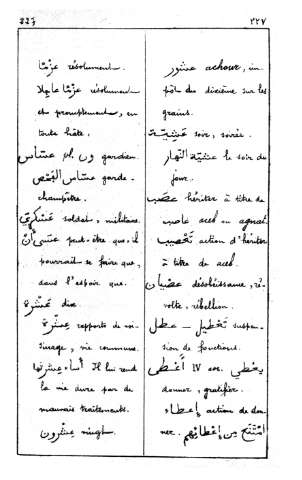 ٢٢٧
عزمًا résolument.
عزمًا عاجلا résolument
et promptement, en
toute hâte.
عسّاس pl. ون gardien
عسّاس الفحص garde-
champêtre.
عسكري soldat, militaire
عسى أن peut-être que, il
pourrait se faire que,
dans l'espoir que.
عشرة dix.
عشرة rapports de voi-
sinage, vie commune.
أساء عشرتها Il lui rend
la vie dure par de
mauvais traitements.
عشرون vingt.
٢٢٧
عشور achour, im-
pôt du dixième sur les
grains.
عشيّة soir, soirée.
عشيّة النهار le soir du
jour.
عصب hériter à titre de
عاصب aceb ou agnat.
تعصيب action d'hériter
à titre de aceb.
عصيان désobéissance, ré-
volte, rébellion.
عطل – تعطيل suspen-
sion de fonctions.
أعطى IV يعطي
donner, gratifier.
إعطاء action de don-
ner. امتنع من إعطائهم